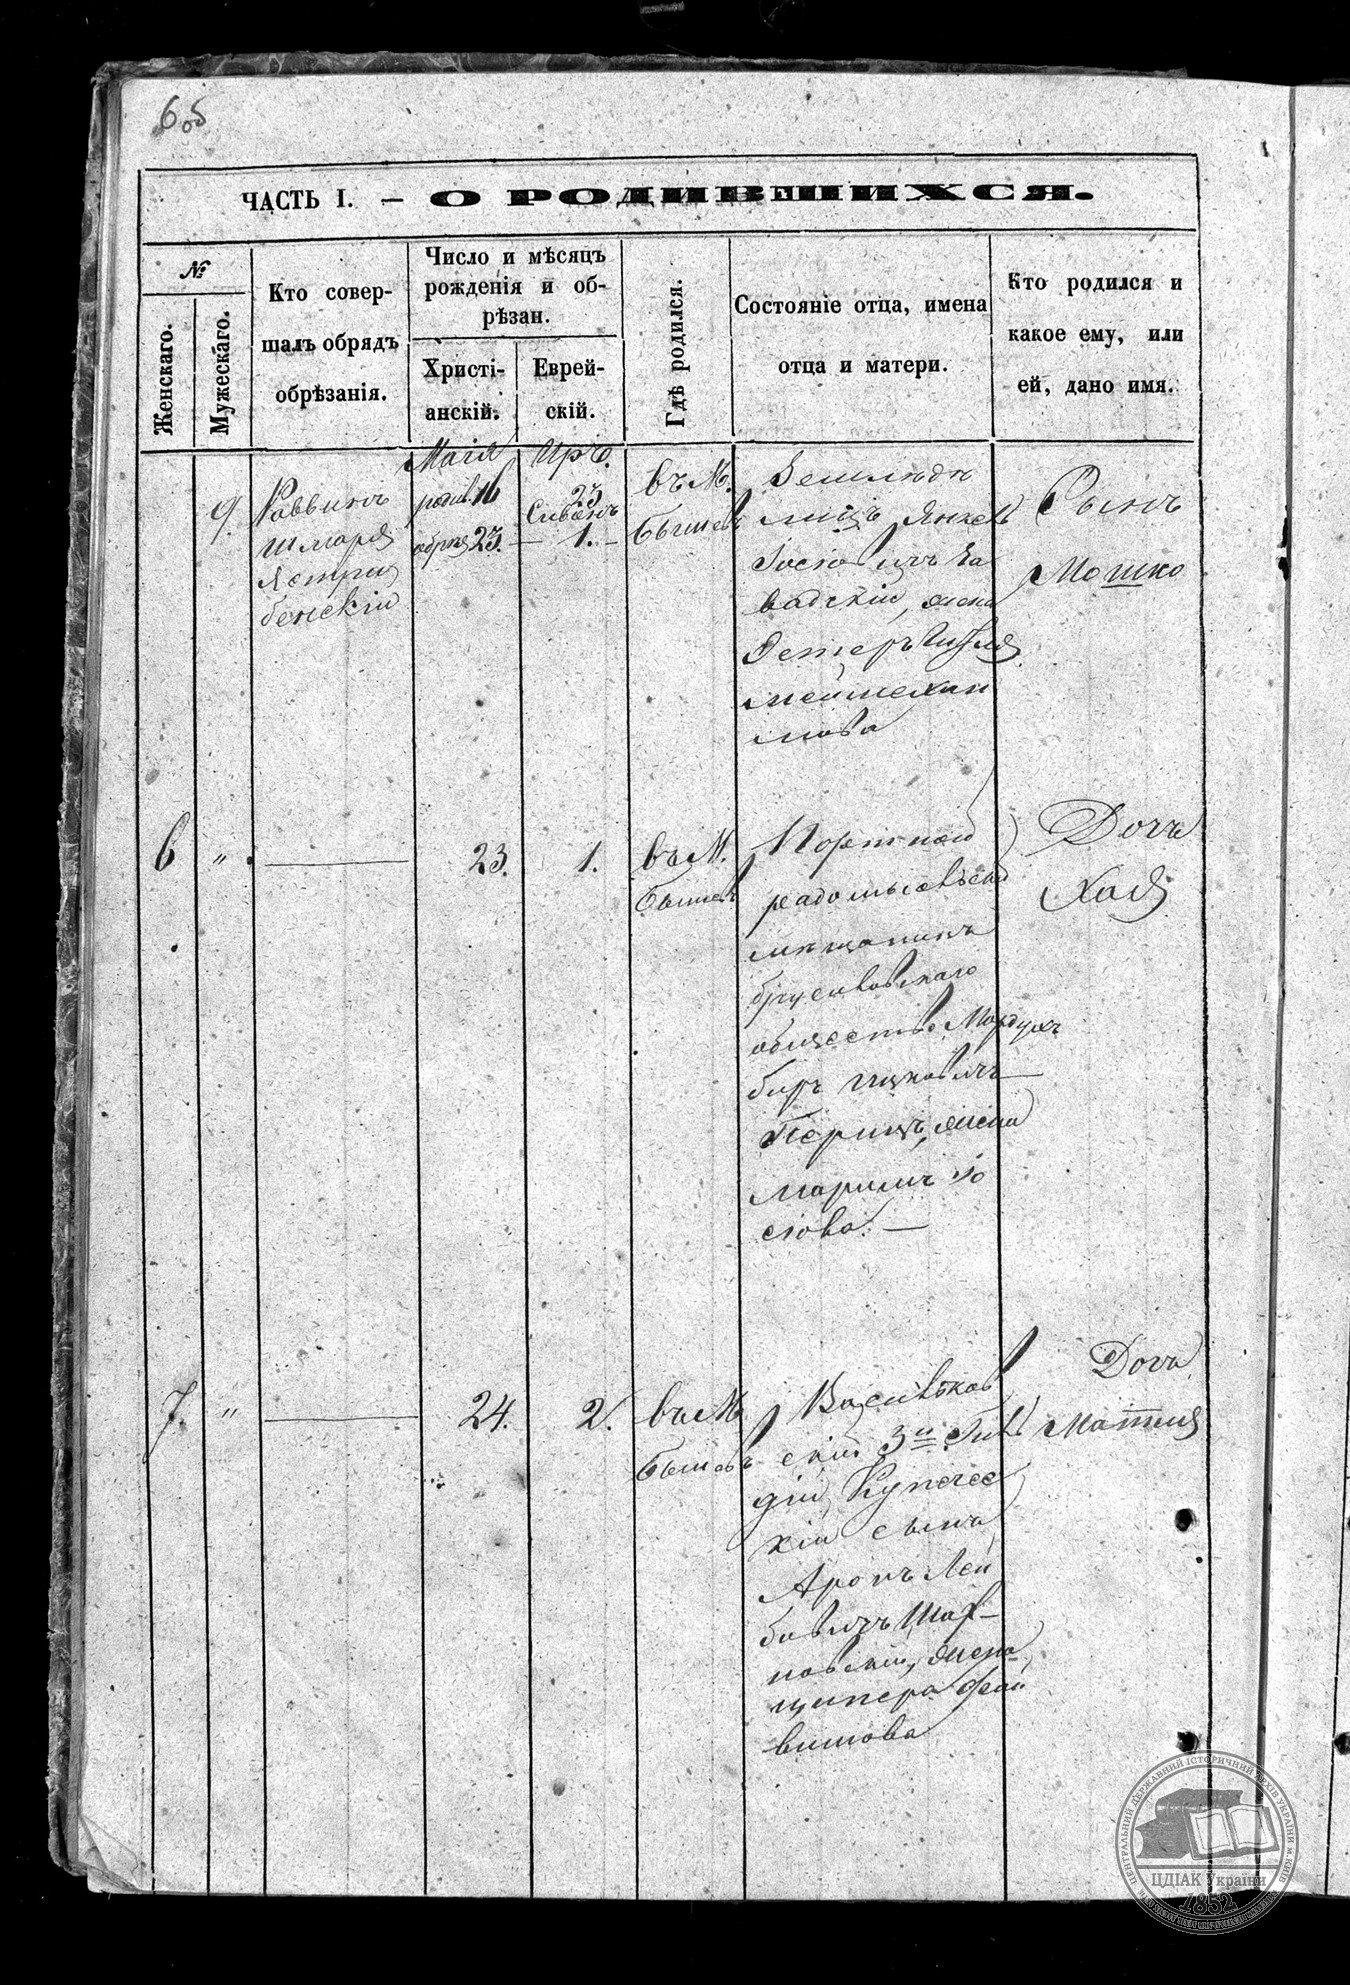 6об
ЧАСТЬ I. — О РОДИВШИХСЯ.
№
Женскаго.
Мужескаго.
Кто совер-
шалъ обрядъ
обрѣзанія.
Число и мѣсяцъ
рожденія и об-
рѣзан.
Христі-
анскій.
Еврей-
скій.
Гдѣ родился.
Состояніе отца, имена
отца и матери.
Кто родился и
какое ему, или
ей, дано имя.
9.
Раввинъ
Шмаря
Ястри
бенскій
Мая
родил. 16
обрѣз 23. —
Иръ.
23
Сивонъ
1. —
въ М.
Бышевъ
Земледѣ
лецъ Янкель
Іосіовичъ За
вадскій, жена
Эстеръ
мова
Сынъ
Мошко
6
"
23.
1.
въ М.
Бышевъ
Портной
радомысльскій
мѣщанинъ
брусиловскаго
общества Мордух
беръ Ицковичъ
Перицъ, жена
Маримъ Іо
сіова. —
Дочь
Хая
7.
"
24.
2.
въ М
Бышевъ
Васильков
скій 3й Гиль
діи Купечес
кій сынъ
Аронъ Лей
бовичъ
новскій, жена
Ципера Фай
вишова
Дочь
Матля
ЦЕНТРАЛЬНИЙ ДЕРЖАВНИЙ ІСТОРИЧНИЙ АРХІВ УКРАЇНИ М. КИЇВ
ЦДІАК України
1852